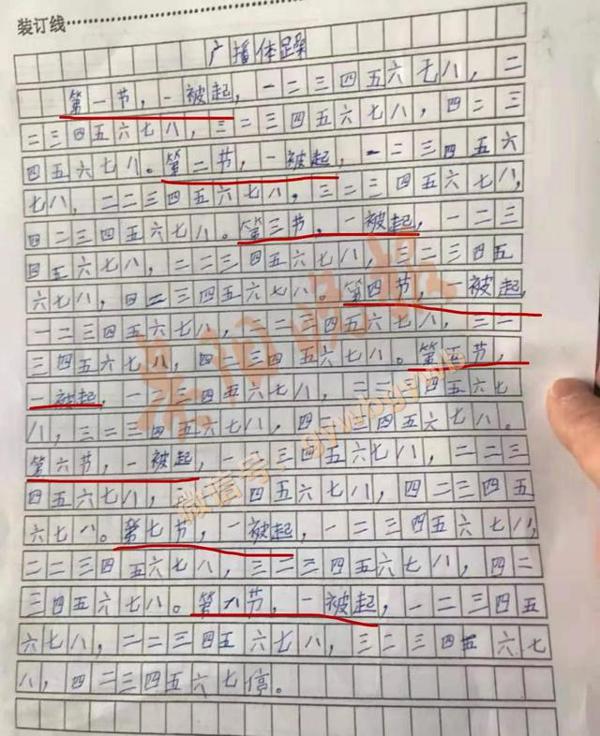 装订线
广播体躁
第一节，一被起，一二三四五六七八，二
二三四五六七八，三二三四五六七八，四二三
四五六七八。第二节，一被起，一二三四五六
七八，二二三四五六七八，三二三四五六七八，
四二三四五六七八。第三节，一被起，一二三
四五六七八，二二三四五六七八，三二三四五
六七八，四二三四五六七八。第四节，一被起，
一二三四五六七八，二二三四五六七八，三二
三四五六七八，四二三四五六七八。第五节，
一被起，一二三四五六七八，二二三四五六七
八，三二三四五六七八，四二三四五六七八。
第六节，一被起，一二三四五六七八，二二三
四五六七八，四五六七八，四二三四五
六七八。第七节，一被起，一二三四五六七八，
二二三四五六七八，三二三四五六七八，四二
三四五六七八。第八节，一被起，一二三四五
六七八，二二三四五六七八，三二三四五六七
八，四二三四五六七停。